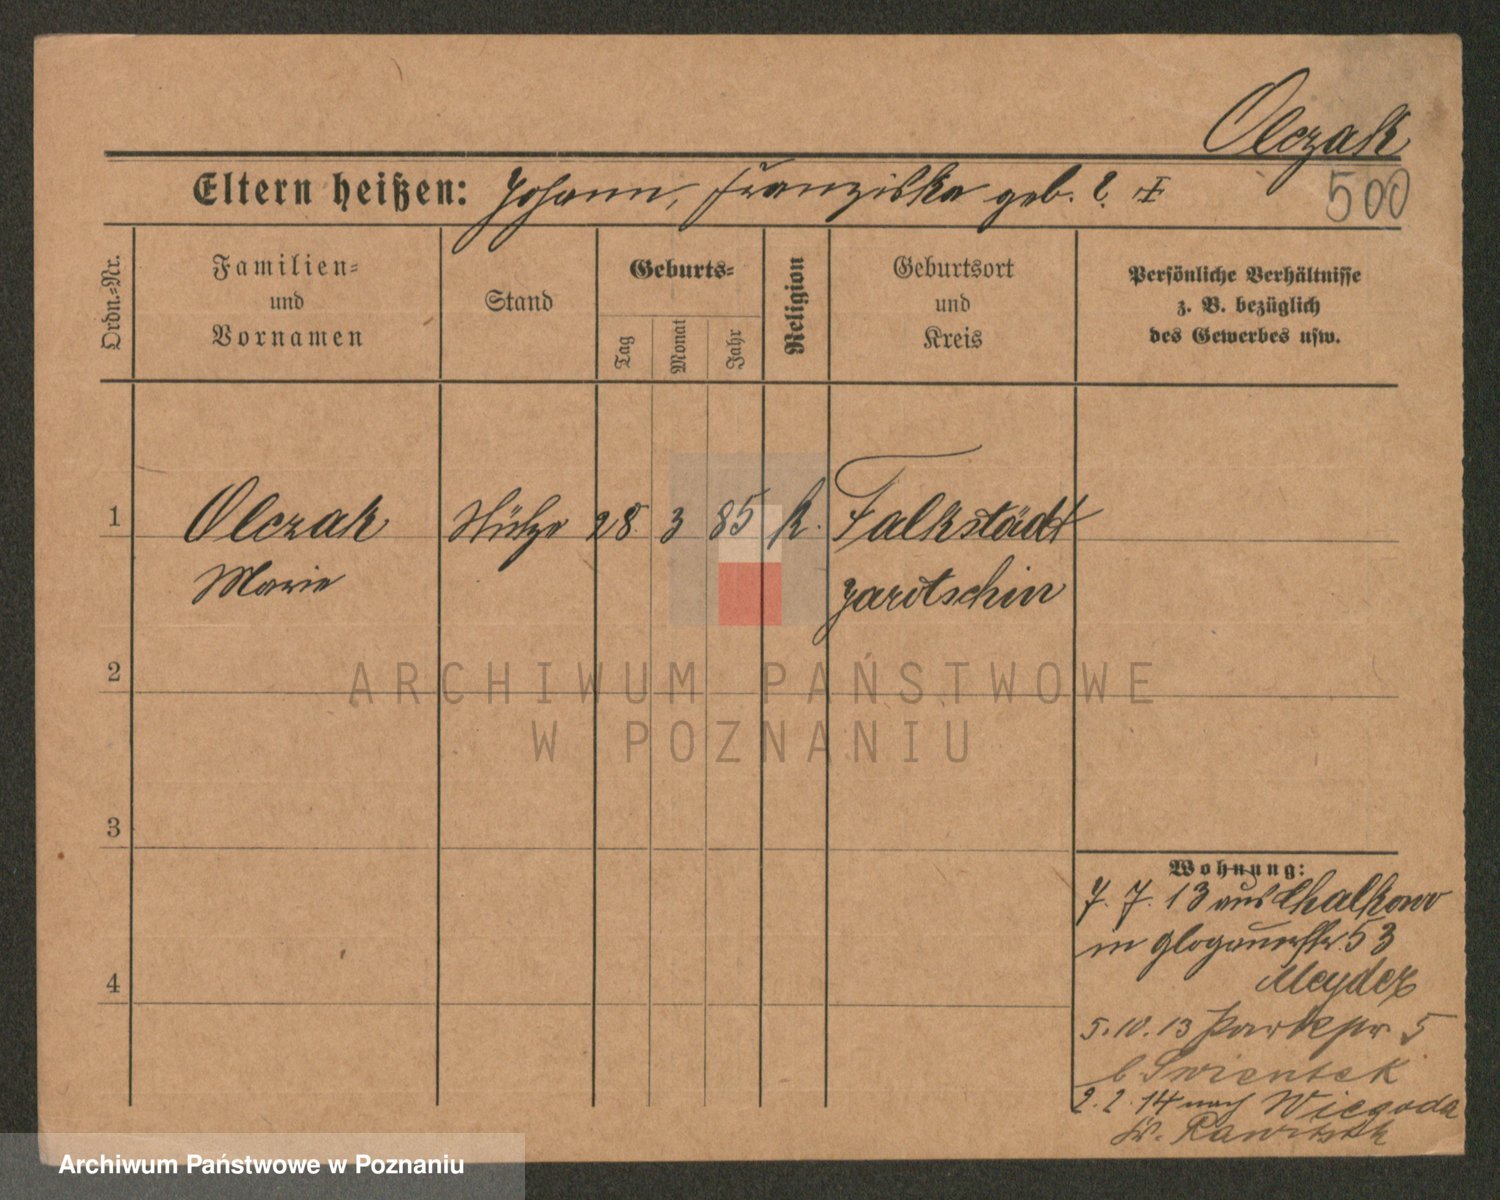 Olczak
500
Eltern heißen: Johann, Franziska geb. ?
Ordn.-Nr.
Familien-
und
Vornamen
Stand
Geburts-
Tag
Monat
Jahr
Religion
Geburtsort
und
Kreis
Persönliche Verhältnisse
z. B. bezüglich
des Gewerbes usw.
1 Olczak Stütze 28 3 85 k. Falkstädt
Marie Jarotschin
2
ARCHIWUM PAŃSTWOWE
W POZNANIU
3
4
Wohnung:
7. 7. 13 aus Chalkowo
in Glogauerstr. 53
Meyder
5. 10. 13 Parkstr 5
b Swientek
2. 2. 14 nach Wiegoda
Kr. Rawitsch
Archiwum Państwowe w Poznaniu